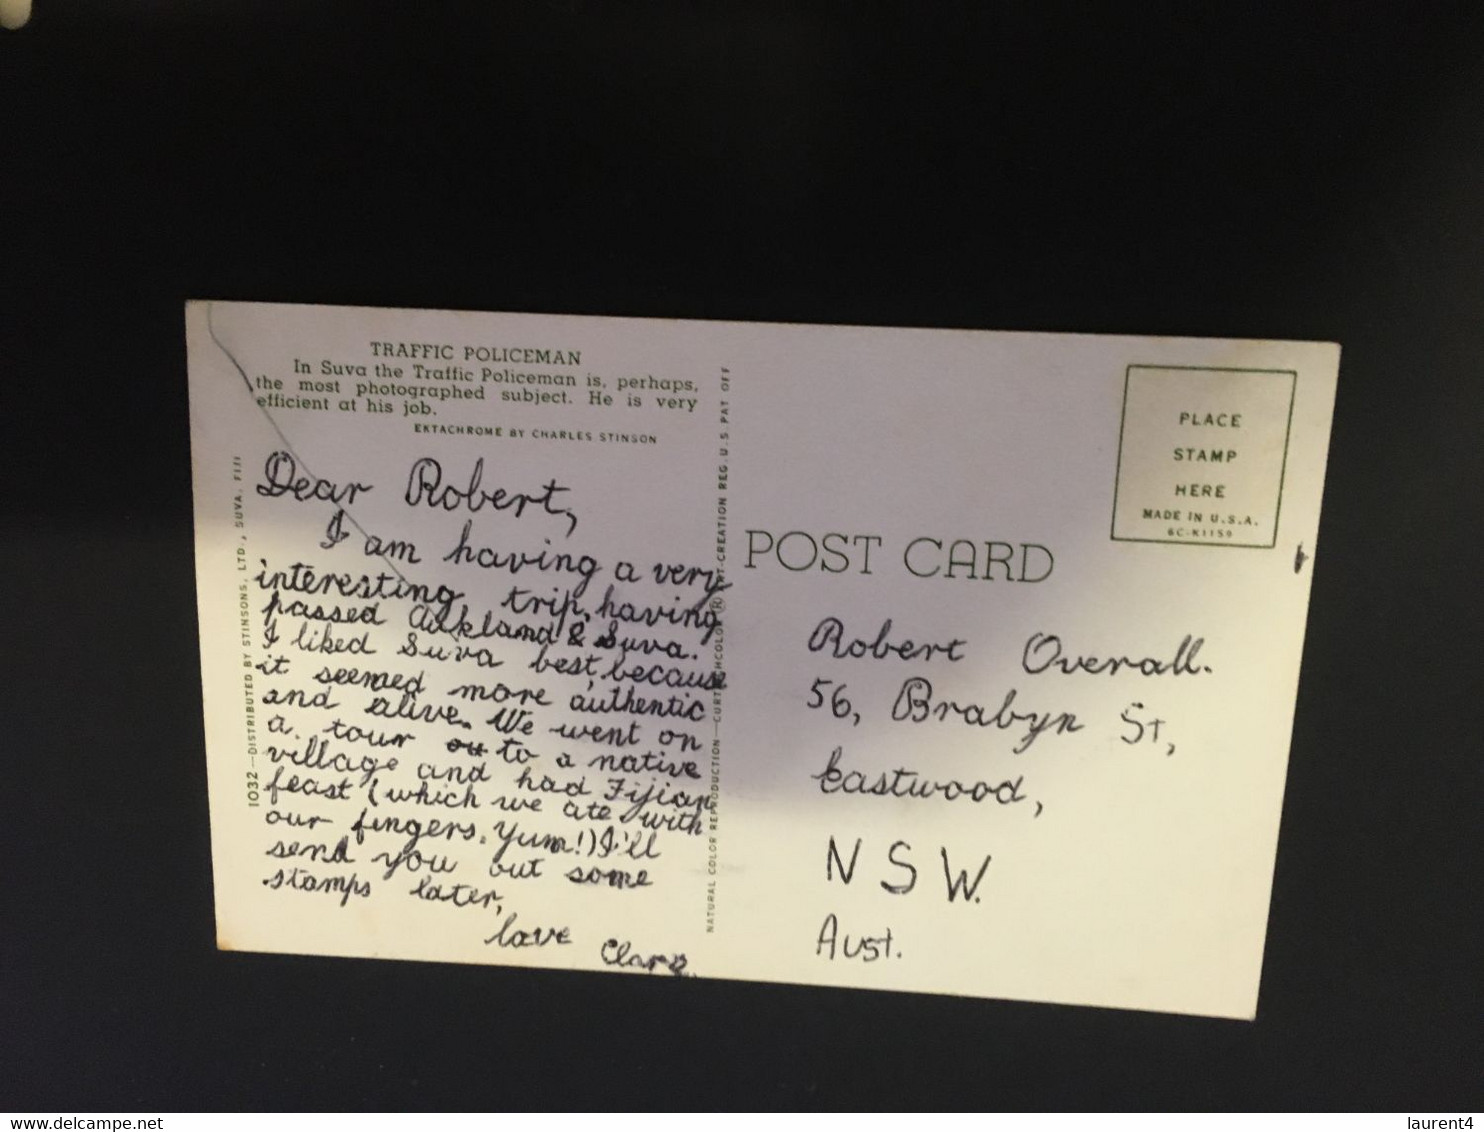 TRAFFIC POLICEMAN
In Suva the Traffic Policeman is, perhaps,
the most photographed subject. He is very
efficient at his job.
EKTACHROME BY CHARLES STINSON
Dear Robert,
I am having a very
interesting trip, having
passed Aukland & Suva.
I liked Suva best, because
it seemed more authentic
and alive. We went on
a tour ou to a native
village and had Fijian
feast (which we ate with
our fingers. Yum!) I'll
send you out some
stamps later,
love Clara.
1032—DISTRIBUTED BY STINSONS, LTD., SUVA, FIJI
NATURAL COLOR REPRODUCTION—CURTEICHCOLOR® ART-CREATION REG. U.S. PAT OFF
POST CARD
PLACE
STAMP
HERE
MADE IN U.S.A.
6C-K1159
Robert Overall.
56, Brabyn St,
Eastwood,
NSW.
Aust.
delcampe.net
laurent4